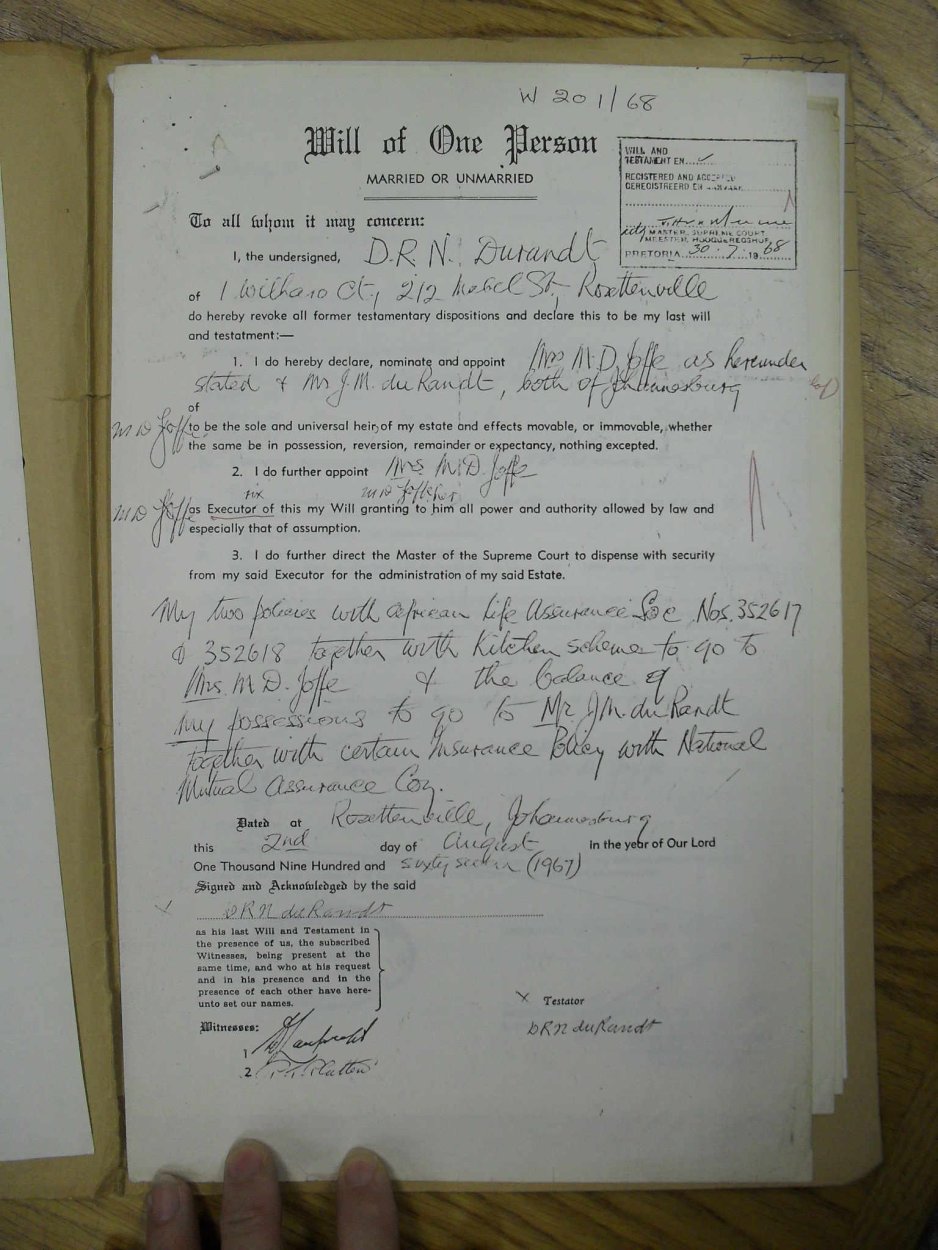 W 201/68
Will of One Person
MARRIED OR UNMARRIED
WILL AND
TESTAMENT EN
REGISTERED AND
GEREGISTREERD EN
MASTER, SUPREME COURT
MEESTER, HOOGGEREGSHOF
PRETORIA 30-7-1968
To all whom it may concern:
I, the undersigned, D.R.N. Durandt
of 1 Ct., 212 Mabel St., Rosettenville
do hereby revoke all former testamentary dispositions and declare this to be my last will
and testatment:—
1. I do hereby declare, nominate and appoint Mrs M.D. Joffe as hereunder
stated & Mr J.M. du Randt, both of Johannesburg
of
M D Joffe to be the sole and universal heirs of my estate and effects movable, or immovable, whether
the same be in possession, reversion, remainder or expectancy, nothing excepted.
2. I do further appoint Mrs. M.D. Joffe
rix M D Joffe her
M D Joffe as Executor of this my Will granting to him all power and authority allowed by law and
especially that of assumption.
3. I do further direct the Master of the Supreme Court to dispense with security
from my said Executor for the administration of my said Estate.
My two policies with African Life Assurance Soc Nos. 352617
& 352618 together with Kitchen scheme to go to
Mrs. M D. Joffe & the balance of
my possessions to go to Mr J.M. du Randt
together with certain Insurance Policy with National
Mutual Assurance Coy.
Dated at Rosettenville, Johannesburg
this 2nd day of August in the year of Our Lord
One Thousand Nine Hundred and sixty seven (1967)
Signed and Acknowledged by the said
X D R N du Randt
as his last Will and Testament in
the presence of us, the subscribed
Witnesses, being present at the
same time, and who at his request
and in his presence and in the
presence of each other have here-
unto set our names.
X Testator
D R N du Randt
Witnesses:
1
2